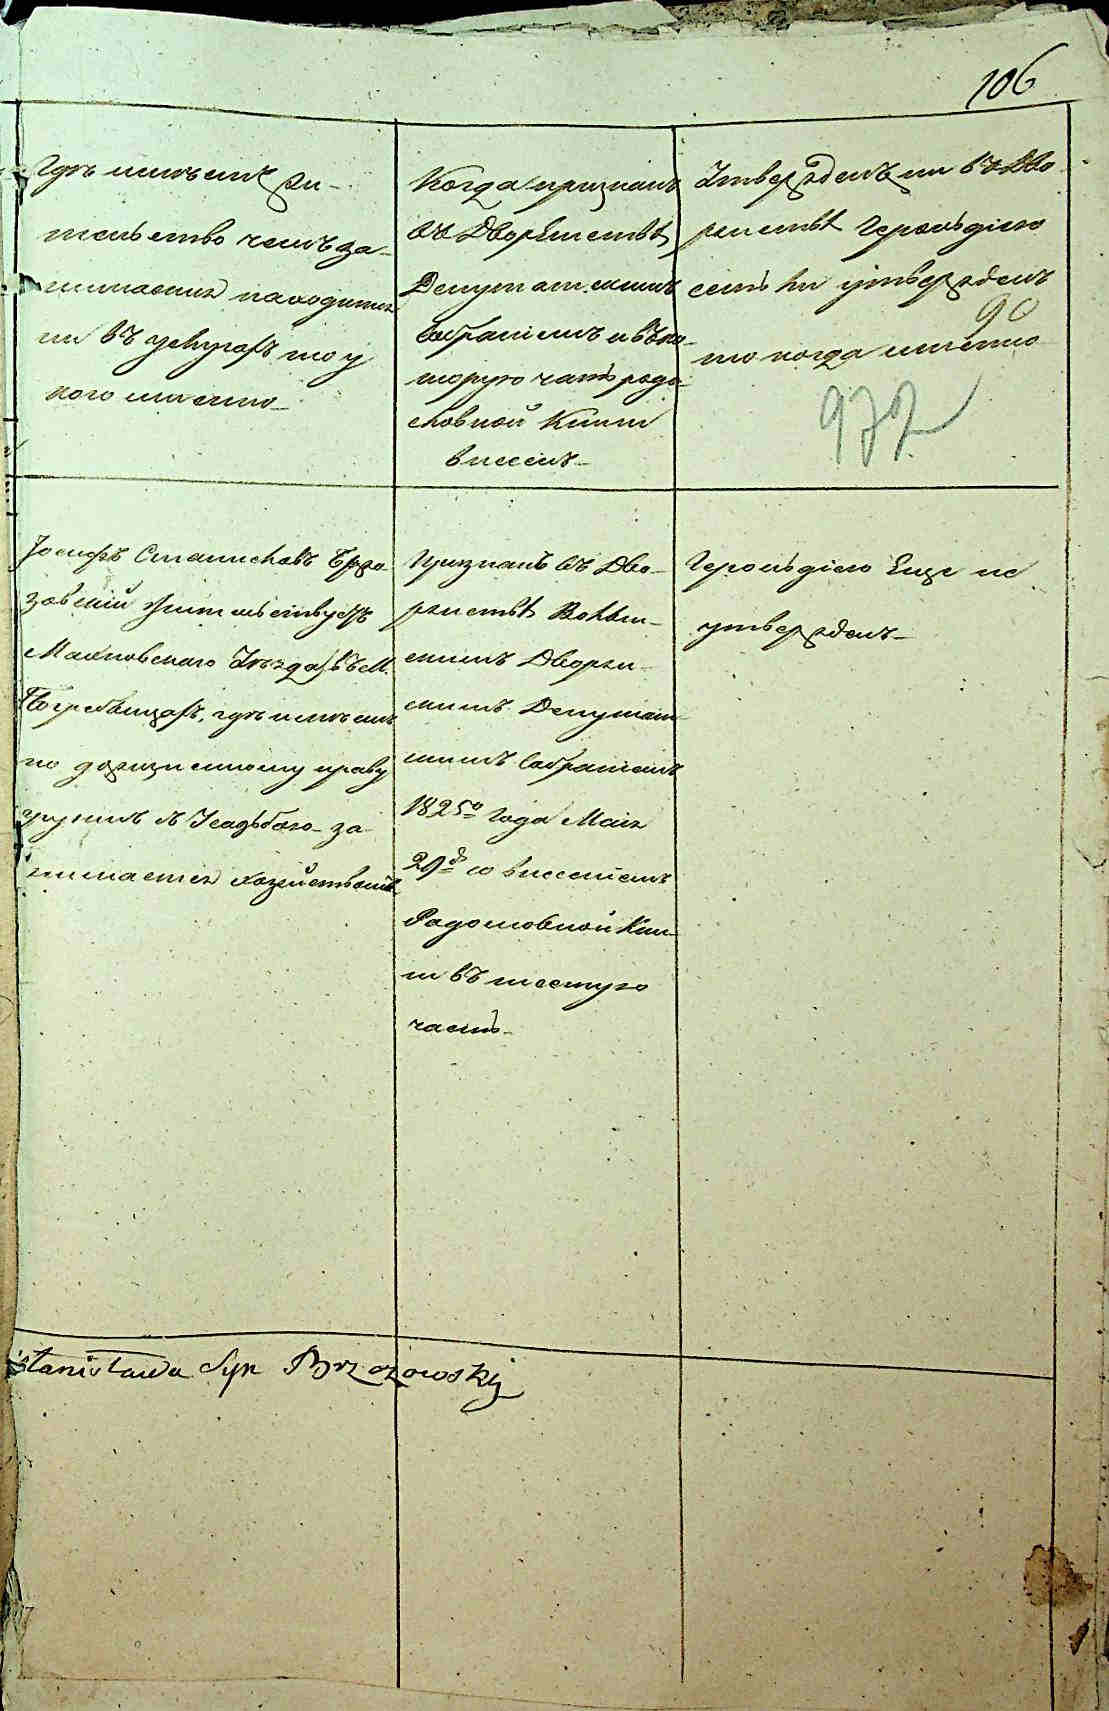 106
Гдѣ имѣетъ жи-
тельство чемъ за-
нимается находится
ли въ услугахъ то у
кого именно
Когда признанъ
въ Дворянствѣ
Депутатскимъ
Собраніемъ и въ ко-
торую часть родо-
словной Книги
внесенъ
Утвержденъ ли въ Дво-
рянствѣ Герольдіею
есть ли утвержденъ
90
то когда именно
972
Іосифъ Станиславъ Брзо-
зовскій жительствуетъ
Махновскаго Уѣзда въ М.
Погребищахъ, гдѣ имѣетъ
по
праву
грунтъ съ Усадьбою за-
нимается хозяйствомъ
Признанъ въ Дво-
рянствѣ Волын-
скимъ Дворян-
скимъ Депутат-
скимъ Собраніемъ
1825го Года Маія
29д со внесеніемъ
Родословной Кни-
ги въ шестую
часть
Герольдіею Еще не
утвержденъ
Stanisława Syn Brzozowski